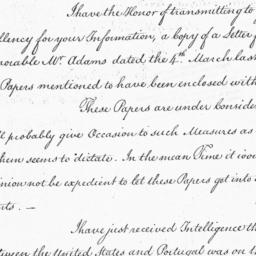 I have the Honor of transmitting to
llency for your Information, a copy of a Letter
orable Mr. Adams dated the 4th March last
Papers mentioned to have been enclosed with
These Papers are under Conside
ll probably give Occasion to such Measures as
them seems to dictate. In the mean Time it
inion not be expedient to let these Papers get into
ts. —
I have just received Intelligence th
between the United States and Portugal was on